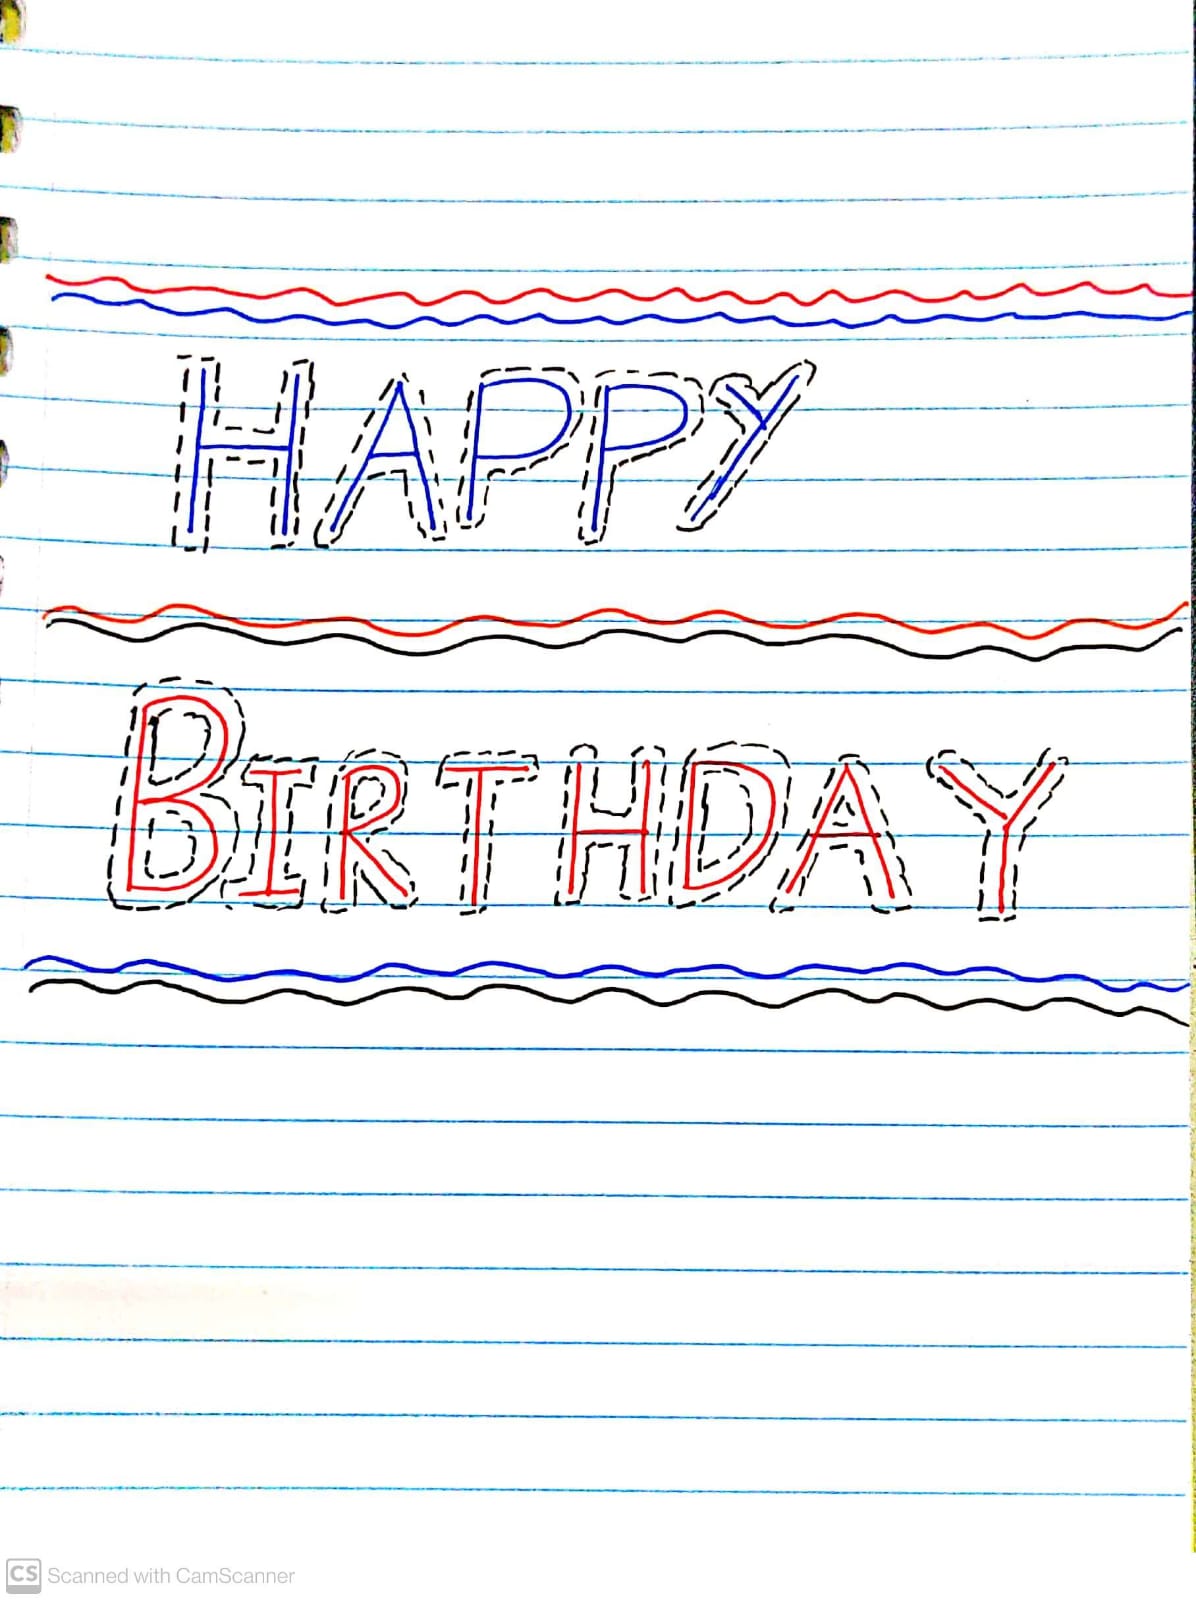 HAPPY
BIRTHDAY
CS Scanned with CamScanner